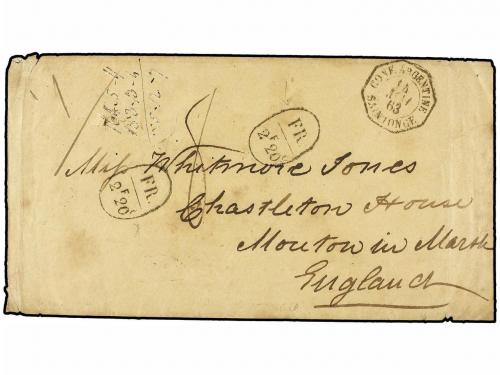 CONF. ARGENTINE
14
63
SAINTONGE
FR.
2F 20c
FR.
2F 20c
Miss Whitmore Jones
Chastleton House
Mouton in Marsh
England